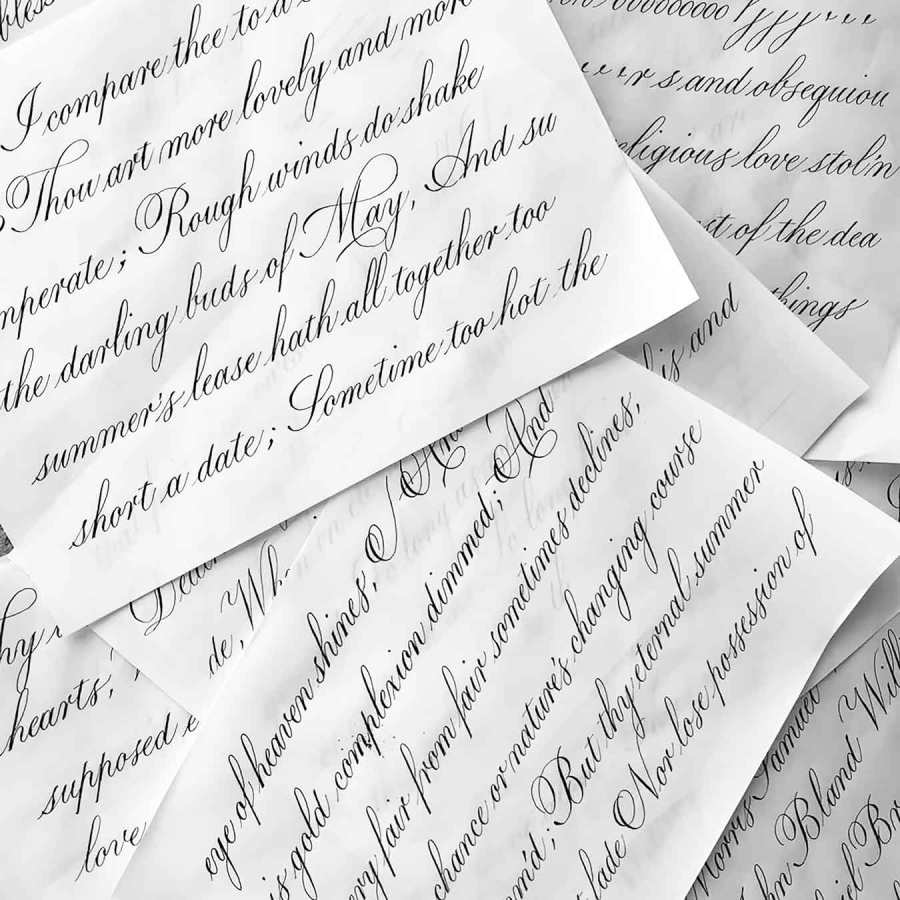 I compare thee to a
Thou art more lovely and more
mperate; Rough winds do shake
the darling buds of May, And su
summer's lease hath all together too
short a date; Sometime too hot the
s and obsequiou
eligious love stol'n
st of the dea
things
is and
And
And
eye of heaven shines,
is gold complexion dimmed;
ery fair from fair sometimes declines,
chance or nature's changing course
m'd; But thy eternal summer
t fade Nor lose possession of
de, Wh
hearts,
supposed
love
Morris Samuel
hn Bland Will
iel Br